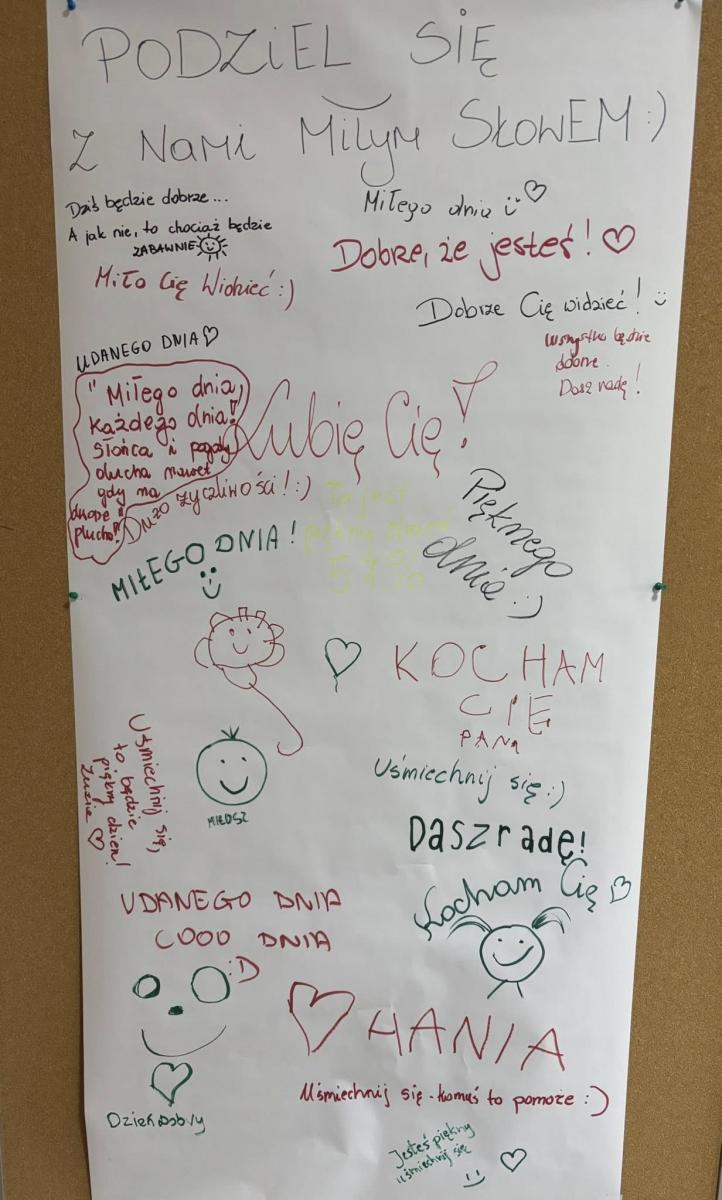 PODZiEL SIĘ
Z NaMi MiŁym SŁOWEM :)
Dziś będzie dobrze...
A jak nie, to chociaż będzie
ZABAWNIE
Miłego dnia
Dobrze, że jesteś!
Miło Cię Widzieć :)
Dobrze Cię widzieć!
UDANEGO DNIA
Wszystko będzie
dobrze.
Dasz radę!
"Miłego dnia,
każdego dnia!
słońca i pogody
ducha nawet
gdy na
dworze
plucha!"
Lubię Cię!
Dużo życzliwości! :)
To jest
piękny
MIŁEGO DNIA!
Pięknego
dnia :)
KOCHAM
CIĘ
PANA
Uśmiechnij się,
to będzie
piękny dzień!
Zuzia
MIŁOSZ
Uśmiechnij się :)
Dasz radę!
Kocham Cię
UDANEGO DNIA
COOO DNIA
:D
HANIA
Uśmiechnij się - komuś to pomoże :)
Dzień dobry
Jesteś piękny
uśmiechnij się